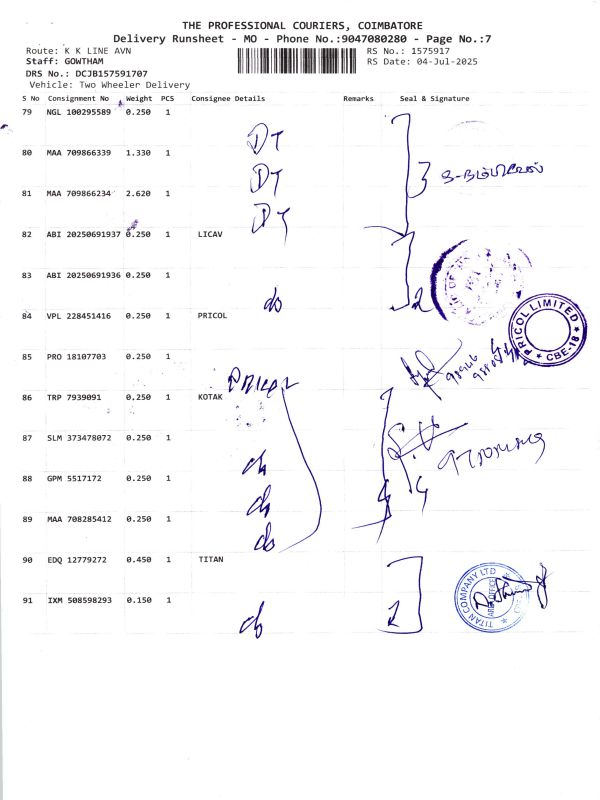 THE PROFESSIONAL COURIERS, COIMBATORE
Delivery Runsheet - MO - Phone No.:9047080280 - Page No.:7
Route: K K LINE AVN
RS No.: 1575917
Staff: GOWTHAM
RS Date: 04-Jul-2025
DRS No.: DCJB157591707
Vehicle: Two Wheeler Delivery
S No Consignment No Weight PCS Consignee Details Remarks Seal & Signature
79 NGL 100295589 0.250 1
DT
80 MAA 709866339 1.330 1
DT
3
81 MAA 709866234 2.620 1
DT
82 ABI 20250691937 0.250 1 LICAV
83 ABI 20250691936 0.250 1
do
2
84 VPL 228451416 0.250 1 PRICOL
PRICOL LIMITED
CBE-18
85 PRO 18107703 0.250 1
PRICOL
86 TRP 7939091 0.250 1 KOTAK
87 SLM 373478072 0.250 1
do
88 GPM 5517172 0.250 1
do
4
89 MAA 708285412 0.250 1
do
90 EDQ 12779272 0.450 1 TITAN
TITAN COMPANY LTD
AREA OFFICE
91 IXM 508598293 0.150 1
do
2